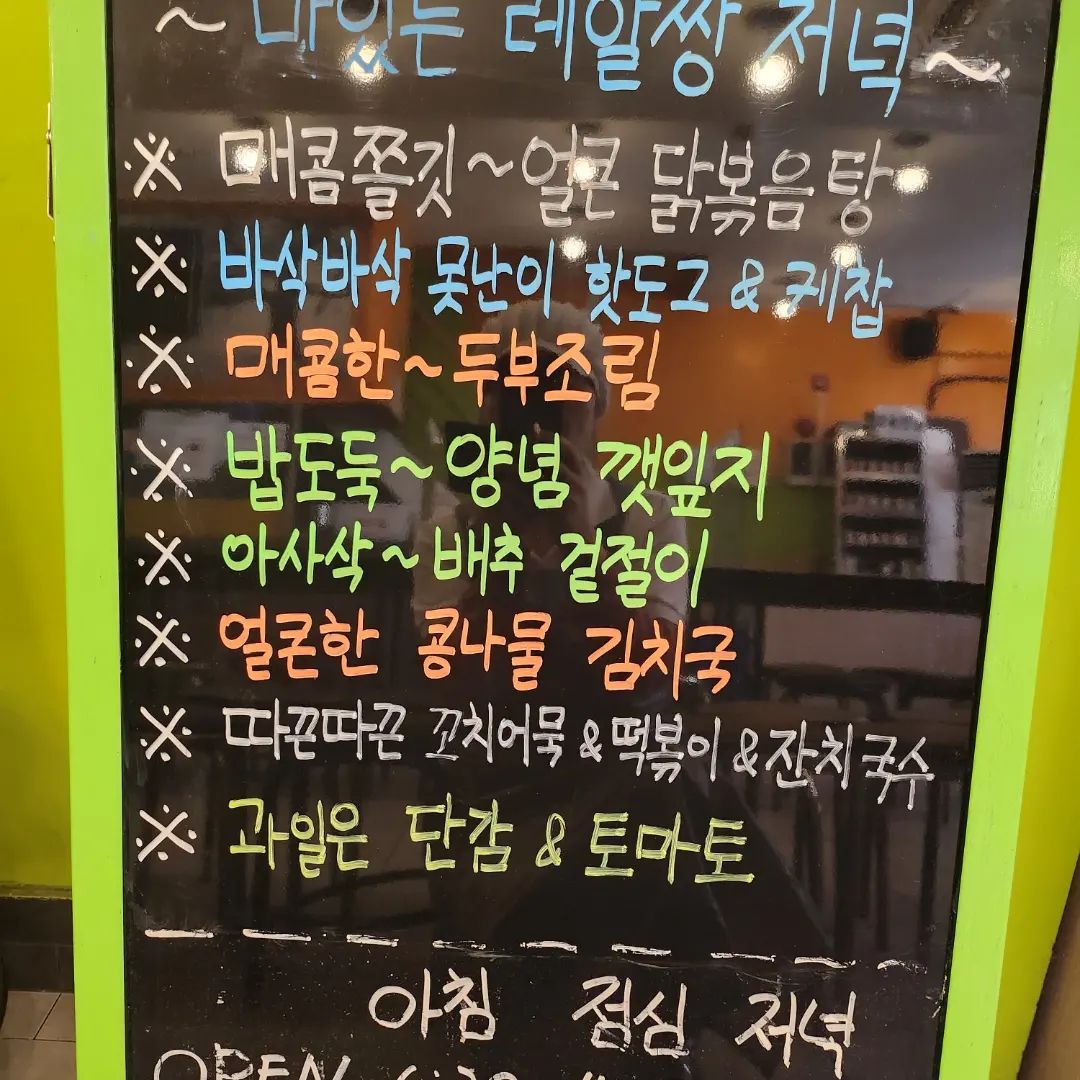 ~ 맛있는 레알쌍 저녁 ~
※ 매콤쫄깃~얼큰 닭볶음탕
※ 바삭바삭 못난이 핫도그 & 케찹
※ 매콤한~두부조림
※ 밥도둑~양념 깻잎지
※ 아사삭~배추 겉절이
※ 얼큰한 콩나물 김치국
※ 따끈따끈 꼬치어묵&떡볶이&잔치국수
※ 과일은 단감 & 토마토
아침 점심 저녁
OPEN